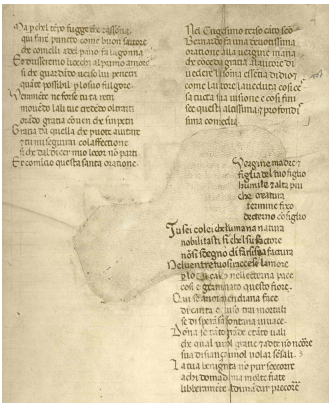 Ma p chel tẽpo fugge che tassõna
qui farẽ puncto come buon sartore
che comelli adel pano fa la gonna
Et driççeremo liocchi al primo amore
si che guardãdo verso lui penetri
quãte possibil plo suo fulgore
Veramẽte ne forse tu ta retri
movẽdo lali tue credẽdo oltrarti
orãdo gratia cõuen che sinpetri
Gratia da quella che puote aiutare
e tu mi seguirai col affectione
si che dal dicer mio lo cor nõ parti
Et comĩcio questa santa oratione
Nel trigesimo terço cãto sco
Bernardo fa una devotissima
oratione alla vergine maria
che cõceda gratia allautore di
vedere la soma essẽtia di dio
come lautore la veduta cosi ce
sa tutta sua visione e cosi fini
sce questa altissima et profondis
sima comedia
Vergine madre
figlia del tuo figlio
humile et alta piu
che creatura
termine fixo
decterno cõsiglio
Tu sei colei che lumana natura
nobilitasti si chel suo factore
nõ si sdegno di farsi sua factura
Nel uentre tuo si raccese lamore
p lo cui caldo nellecterna pace
cosi e germinato questo fiore
Qui se a noi meridiana face
di carita et giuso trai mortali
se di sperãça fontana uiuace
Dona se tãto grãde et tãto uali
che qual uuol gratia et a te nõ ricorre
sua disiãça uuol uolar sẽçali
La tua benignita nõ pur soccorre
a chi domãda ma molte fiate
liberamente al dimãdar precorre